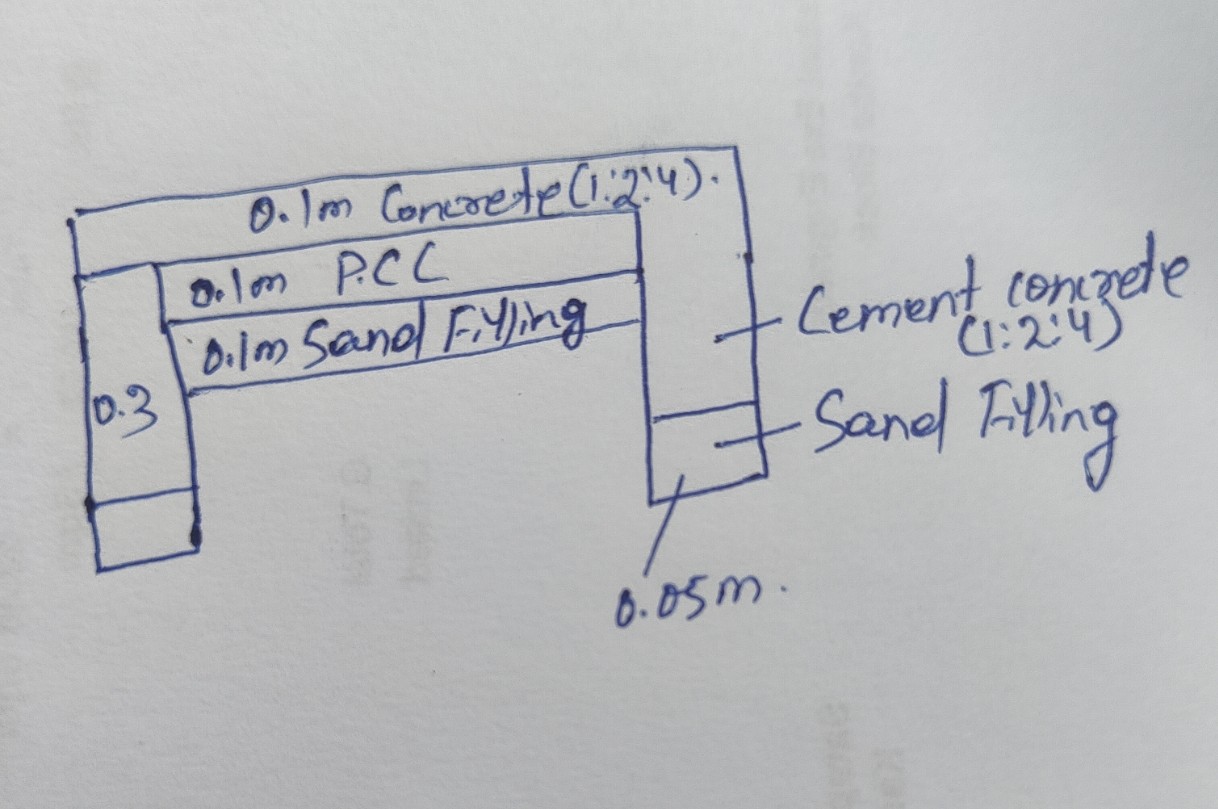 0.1m Concrete (1:2:4).
0.1m P.C.C
0.1m Sand Filling
0.3
Cement concrete
(1:2:4)
Sand Filling
0.05m.